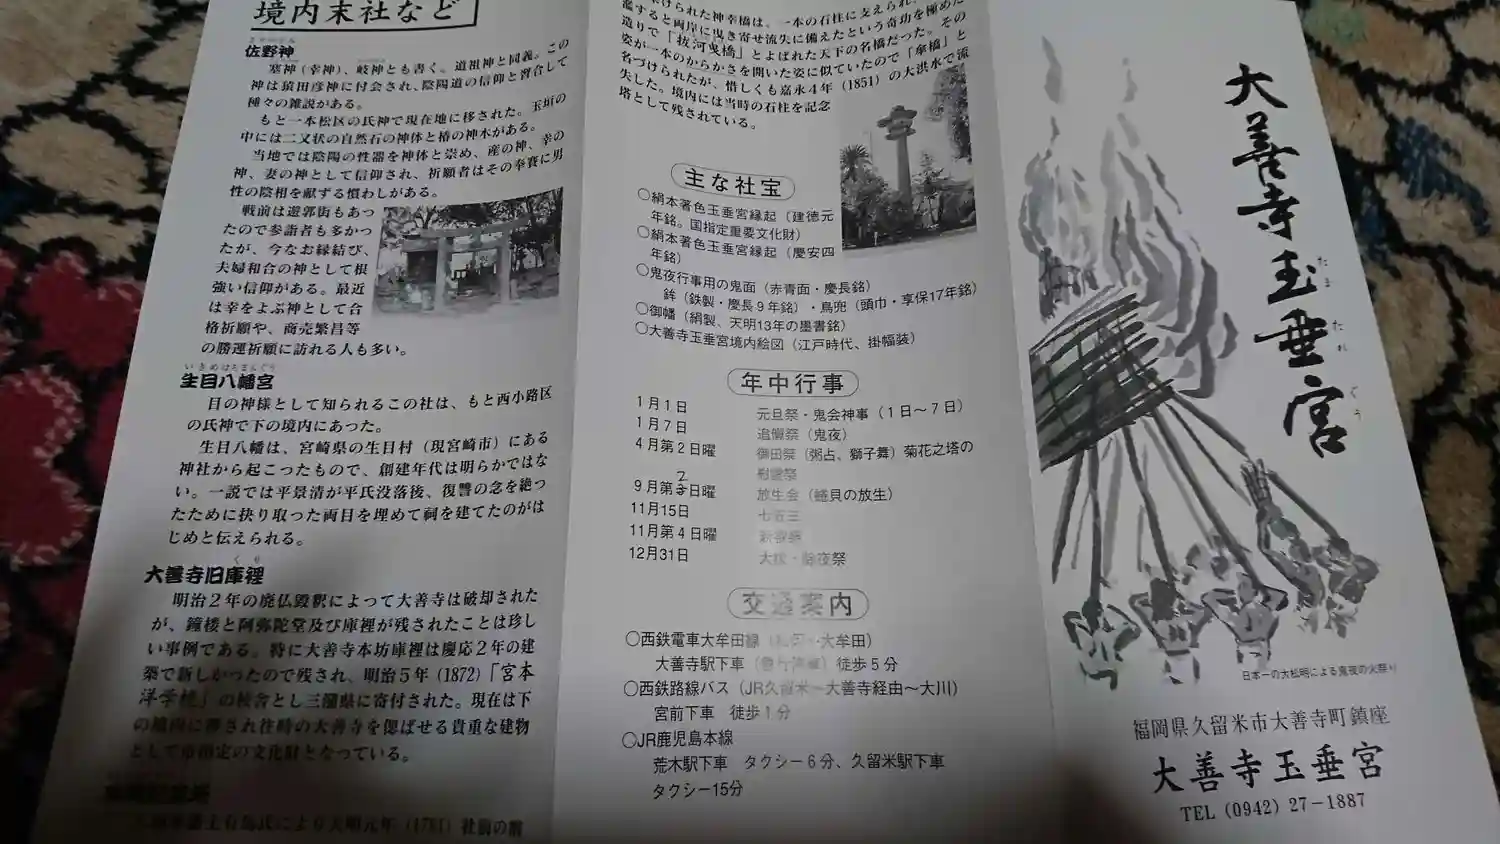 境内末社など
佐野神
塞神（幸神）、岐神とも書く。道祖神と同義。この
神は猿田彦神に付会され、陰陽道の信仰と習合して
種々の雑説がある。
もと一本松区の氏神で現在地に移された。玉垣の
中には二又状の自然石の神体と椿の神木がある。
当地では陰陽の性器を神体と崇め、産の神、幸の
神、妻の神として信仰され、祈願者はその奉賽に男
性の陰相を献ずる慣わしがある。
戦前は遊郭街もあっ
たので参詣者も多かっ
たが、今なお縁結び、
夫婦和合の神として根
強い信仰がある。最近
は幸をよぶ神として合
格祈願や、商売繁昌等
の勝運祈願に訪れる人も多い。
いきめはちまんぐう
生目八幡宮
目の神様として知られるこの社は、もと西小路区
の氏神で下の境内にあった。
生目八幡は、宮崎県の生目村（現宮崎市）にある
神社から起こったもので、創建年代は明らかではな
い。一説では平景清が平氏没落後、復讐の念を絶つ
ために抉り取った両目を埋めて祠を建てたのがは
じめと伝えられる。
くり
大善寺旧庫裡
明治２年の廃仏毀釈によって大善寺は破却された
が、鐘楼と阿弥陀堂及び庫裡が残されたことは珍し
い事例である。特に大善寺本坊庫裡は慶応２年の建
築で新しかったので残され、明治５年（1872）「宮本
洋学校」の校舎とし三瀦県に寄付された。現在は下
の境内に移され往時の大善寺を偲ばせる貴重な建物
として市指定の文化財となっている。
（1781）社前の
けられた神幸橋は。一本の石柱に支えられ、
濫すると両岸に曳き寄せ流失に備えたという奇功を極めた
造りで「抜河曳橋」とよばれた天下の名橋だった。その
姿が一本のからかさを開いた姿に似ていたので「傘橋」と
名づけられたが、惜しくも嘉永４年（1851）の大洪水で流
失した。境内には当時の石柱を記念
塔として残されている。
主な社宝
○絹本著色玉垂宮縁起（建徳元
年銘。国指定重要文化財）
○絹本著色玉垂宮縁起（慶安四
年銘）
○鬼夜行事用の鬼面（赤青面・慶長銘）
鉾（鉄製・慶長９年銘）・鳥兜（頭巾・享保17年銘）
○御幡（絹製、天明13年の墨書銘）
○大善寺玉垂宮境内絵図（江戸時代、掛幅装）
年中行事
１月１日　元旦祭・鬼会神事（１日～７日）
１月７日　追儺祭（鬼夜）
４月第２日曜　御田祭（粥占、獅子舞）菊花之塔の
慰霊祭
９月第2日曜　放生会（蜷貝の放生）
11月15日　七五三
11月第４日曜　新穀祭
12月31日　大祓・除夜祭
交通案内
○西鉄電車大牟田線（福岡～大牟田）
大善寺駅下車（急行停車）徒歩５分
○西鉄路線バス（JR久留米～大善寺経由～大川）
宮前下車　徒歩１分
○JR鹿児島本線
荒木駅下車　タクシー６分、久留米駅下車
タクシー15分
大善寺玉垂宮
たまたれぐう
日本一の大松明による鬼夜の火祭り
福岡県久留米市大善寺町鎮座
大善寺玉垂宮
TEL（0942）27－1887